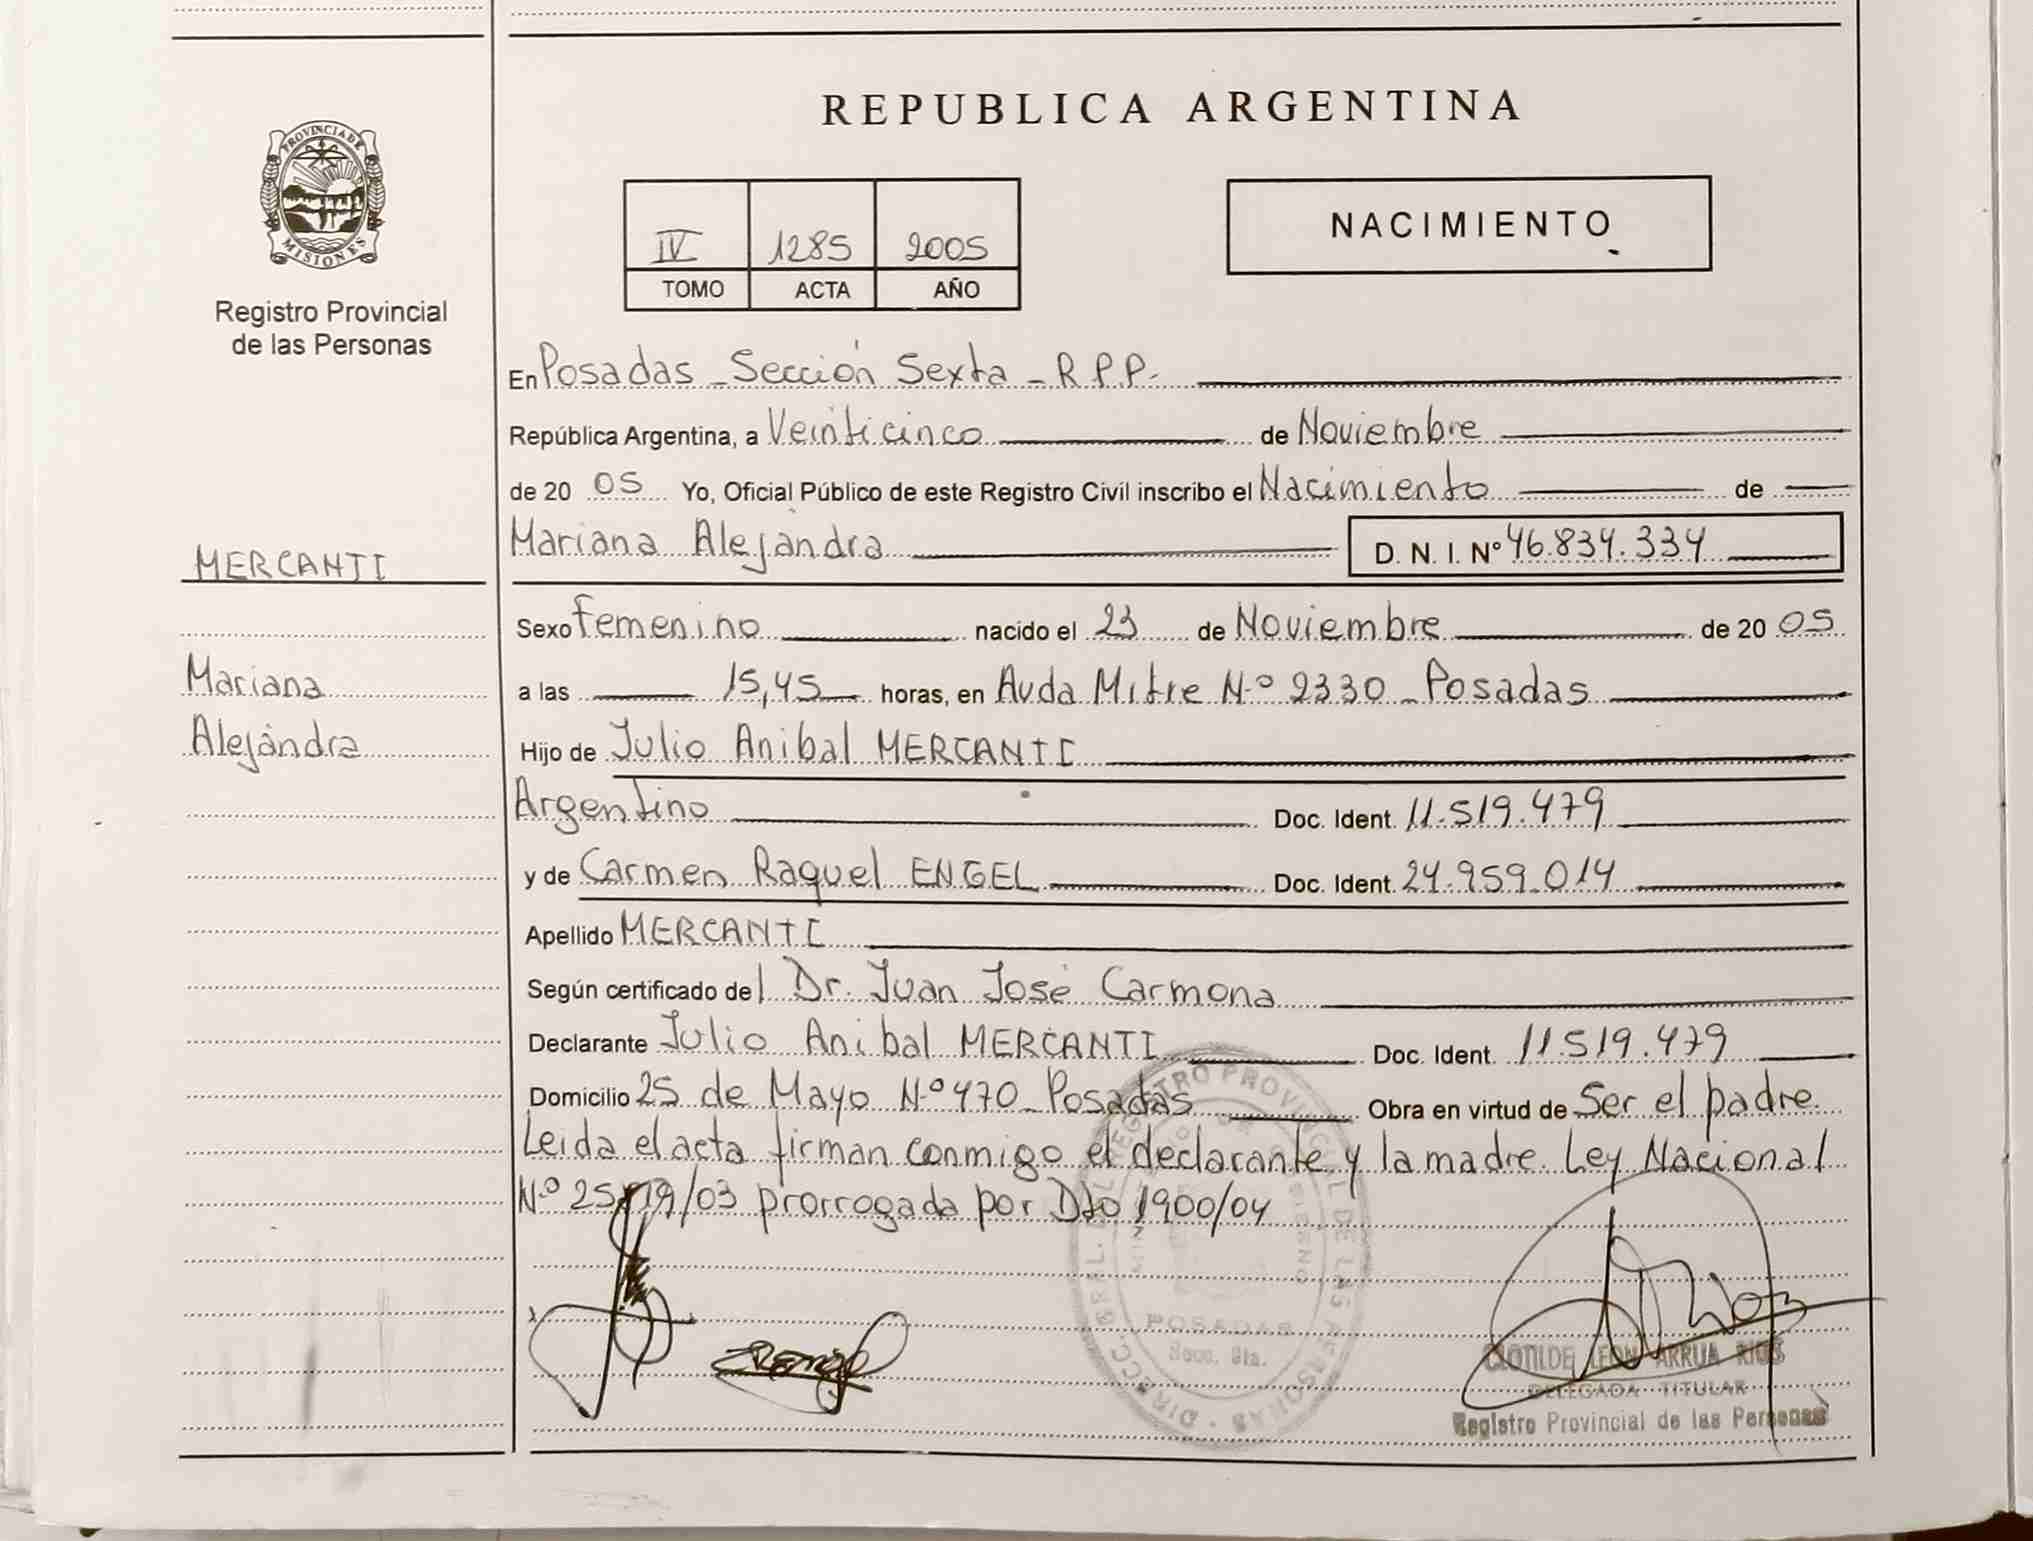 REPUBLICA ARGENTINA
PROVINCIA DE
MISIONES
Registro Provincial
de las Personas
IV 1285 2005
TOMO ACTA AÑO
NACIMIENTO
En Posadas - Sección Sexta - R.P.P.
República Argentina, a Veinticinco de Noviembre
de 20 05 Yo, Oficial Público de este Registro Civil inscribo el Nacimiento de
Mariana Alejandra D. N. I. Nº 46.834.334
MERCANTI
Mariana
Alejandra
Sexo Femenino nacido el 23 de Noviembre de 20 05
a las 15,45 horas, en Avda Mitre Nº 2330 - Posadas
Hijo de Julio Anibal MERCANTI
Argentino Doc. Ident. 11.519.479
y de Carmen Raquel ENGEL Doc. Ident. 24.959.014
Apellido MERCANTI
Según certificado del Dr. Juan José Carmona
Declarante Julio Anibal MERCANTI Doc. Ident. 11.519.479
Domicilio 25 de Mayo Nº 470 - Posadas Obra en virtud de Ser el padre
Leida el acta firman conmigo el declarante y la madre. Ley Nacional
Nº /03 prorrogada por Dto 1900/04
DIRECC. GRAL. DEL REGISTRO PROVINCIAL DE LAS PERSONAS
POSADAS
Secc. 6ta.
CLOTILDE LEON ARRUA RIOS
DELEGADA TITULAR
Registro Provincial de las Personas